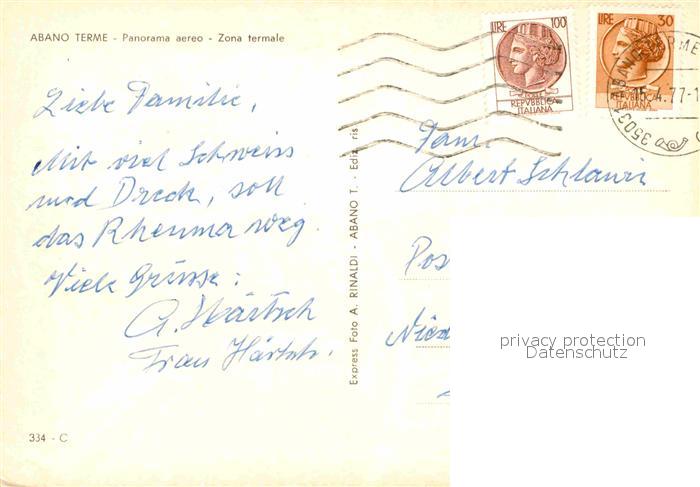 ABANO TERME - Panorama aereo - Zona termale
LIRE 100
REPVBBLICA
ITALIANA
LIRE 30
REPVBBLICA
ITALIANA
15.4.77-1
3503
Liebe Familie,
Mit viel Schweiss
und Dreck, soll
das Rheuma weg.
Viele Grüsse:
A. Härtsch
Frau Härtsch.
Express Foto A. RINALDI - ABANO T. - Ediz. ris
Fam.
Albert
Pos
privacy protection
Datenschutz
334 - C